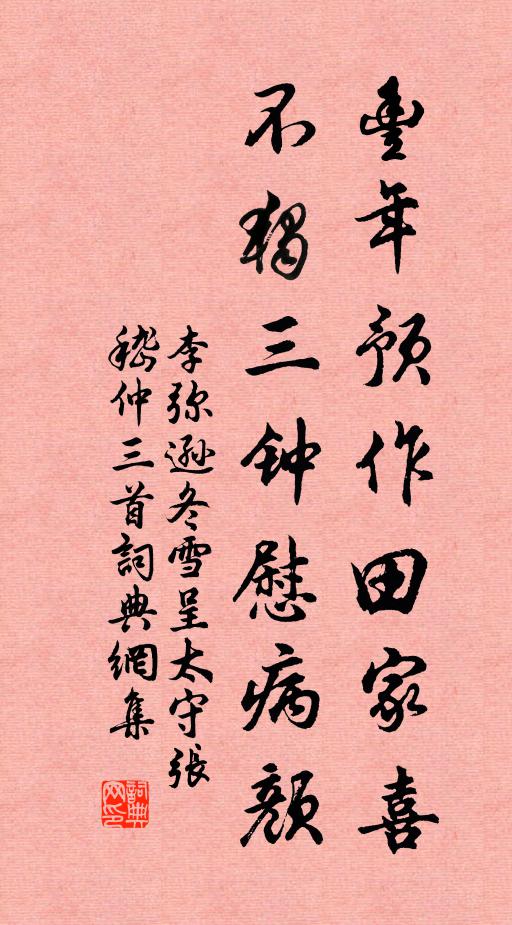 豊年预作田家喜
不独三钟慰病颜
李弥遜冬雪呈太守張
嵇仲三首詞典網集
詞典
网印